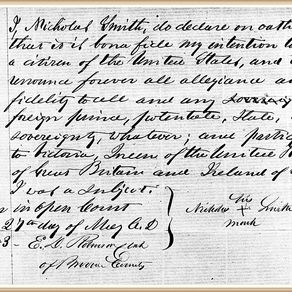 I, Nicholas Smith, do declare on oath
that it is bona fide my intention to
a citizen of the United States, and
renounce forever all allegiance a
fidelity to all and any
foreign prince, potentate, State,
sovereignty, whatever; and partic
to Victoria, Queen of the United
of Great Britain and Ireland of
I was a Subject.
in open Court
27th day of May A.D
3- E. C. Robinson clk
of Broome County
his
Nicholas + Smith
mark